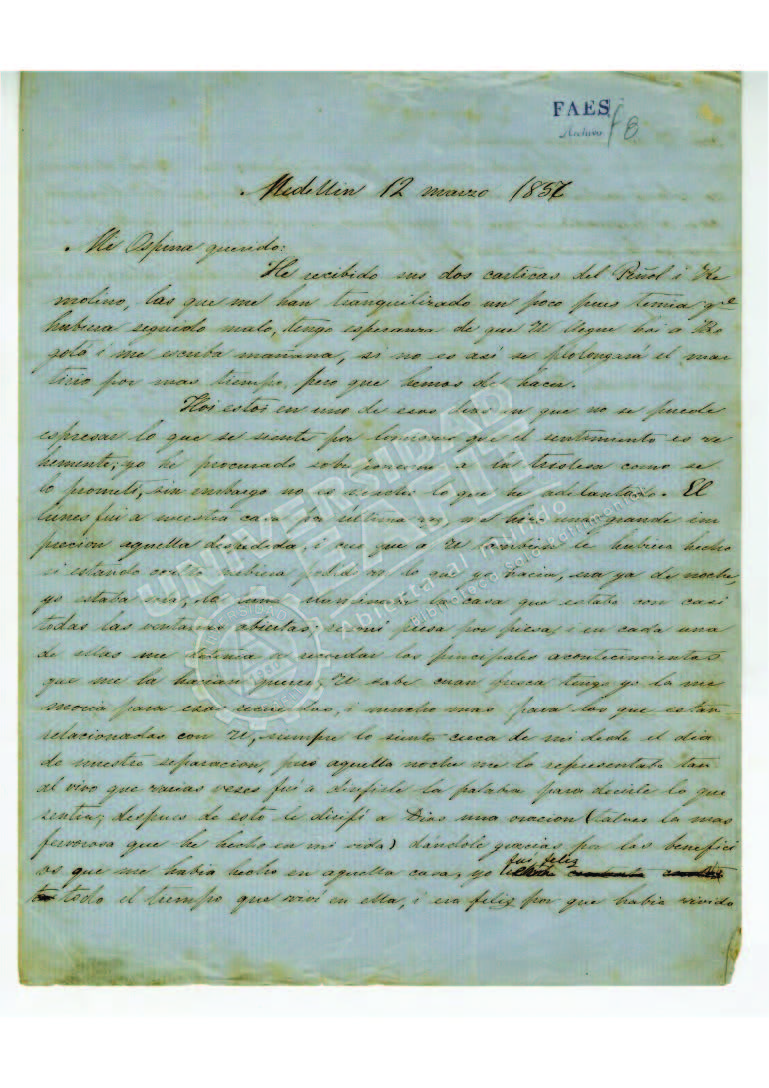 FAES
Archivo
f 8
Medellin 12 marzo 1857
Mi Ospina querido:
He recibido sus dos carticas del Peñol i Re
molino, las que me han tranquilizado un poco pues temia qe
hubiera seguido malo, tengo esperanza de que U llegue hoi a Bo
gotá i me escriba mañana, si no es así se prolongará el mar
tirio por mas tiempo, pero que hemos de hacer.
Hoi estoi en uno de esos dias en que no se puede
espresar lo que se siente por lo mismo que el sentimiento es ve
hemente; yo he procurado sobreponerme a la tristesa como se
lo prometi, sin embargo no es mucho lo que he adelantado. El
lunes fui a nuestra casa por última vez, me hizo una grande im
precion aquella despedida, i creo que a U tambien le hubiera hecho
si estando oculto hubiera podido ver lo que yo hacia, era ya de noche,
yo estaba sola, la luna iluminaba la casa que estaba con casi
todas las ventanas abiertas, recorri piesa por piesa, i en cada una
de ellas me detenia a recordar los principales acontecimientos
que me la hacian querer, U sabe cuan fresca tengo yo la me
moria para esos recuerdos, i mucho mas para los que estan
relacionados con U, siempre lo siento cerca de mi desde el dia
de nuestra separacion, pero aquella noche me lo representaba tan
al vivo que varias veses fui a dirijirle la palabra para decirle lo que
sentia; despues de esto le dirijí a Dios una oracion (talves la mas
fervorosa que he hecho en mi vida) dándole gracias por los benefici
os que me habia hecho en aquella casa, yo fui feliz
todo el tiempo que viví en ella, i era feliz por que habia vivido
UNIVERSIDAD
EAFIT
Abierta al mundo
Biblioteca Sala Patrimonial